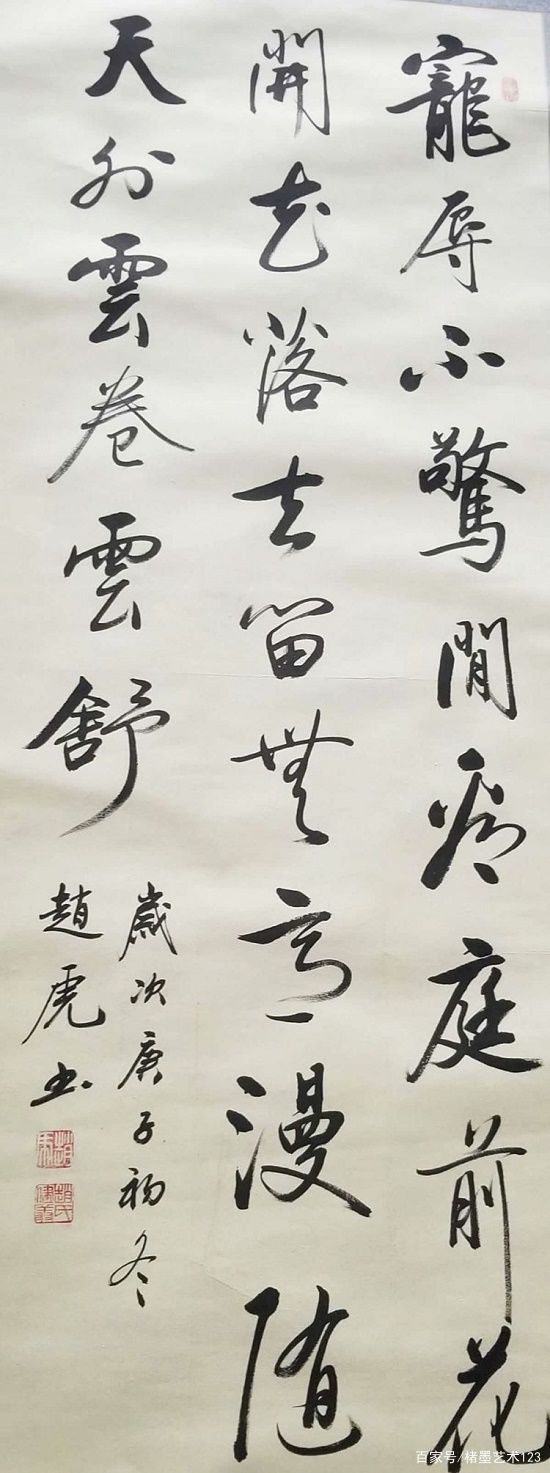 寵辱不驚閒看庭前花
開花落去留無意漫随
天外雲卷雲舒
歲次庚子初冬
趙虎书
百家号/楮墨艺术123